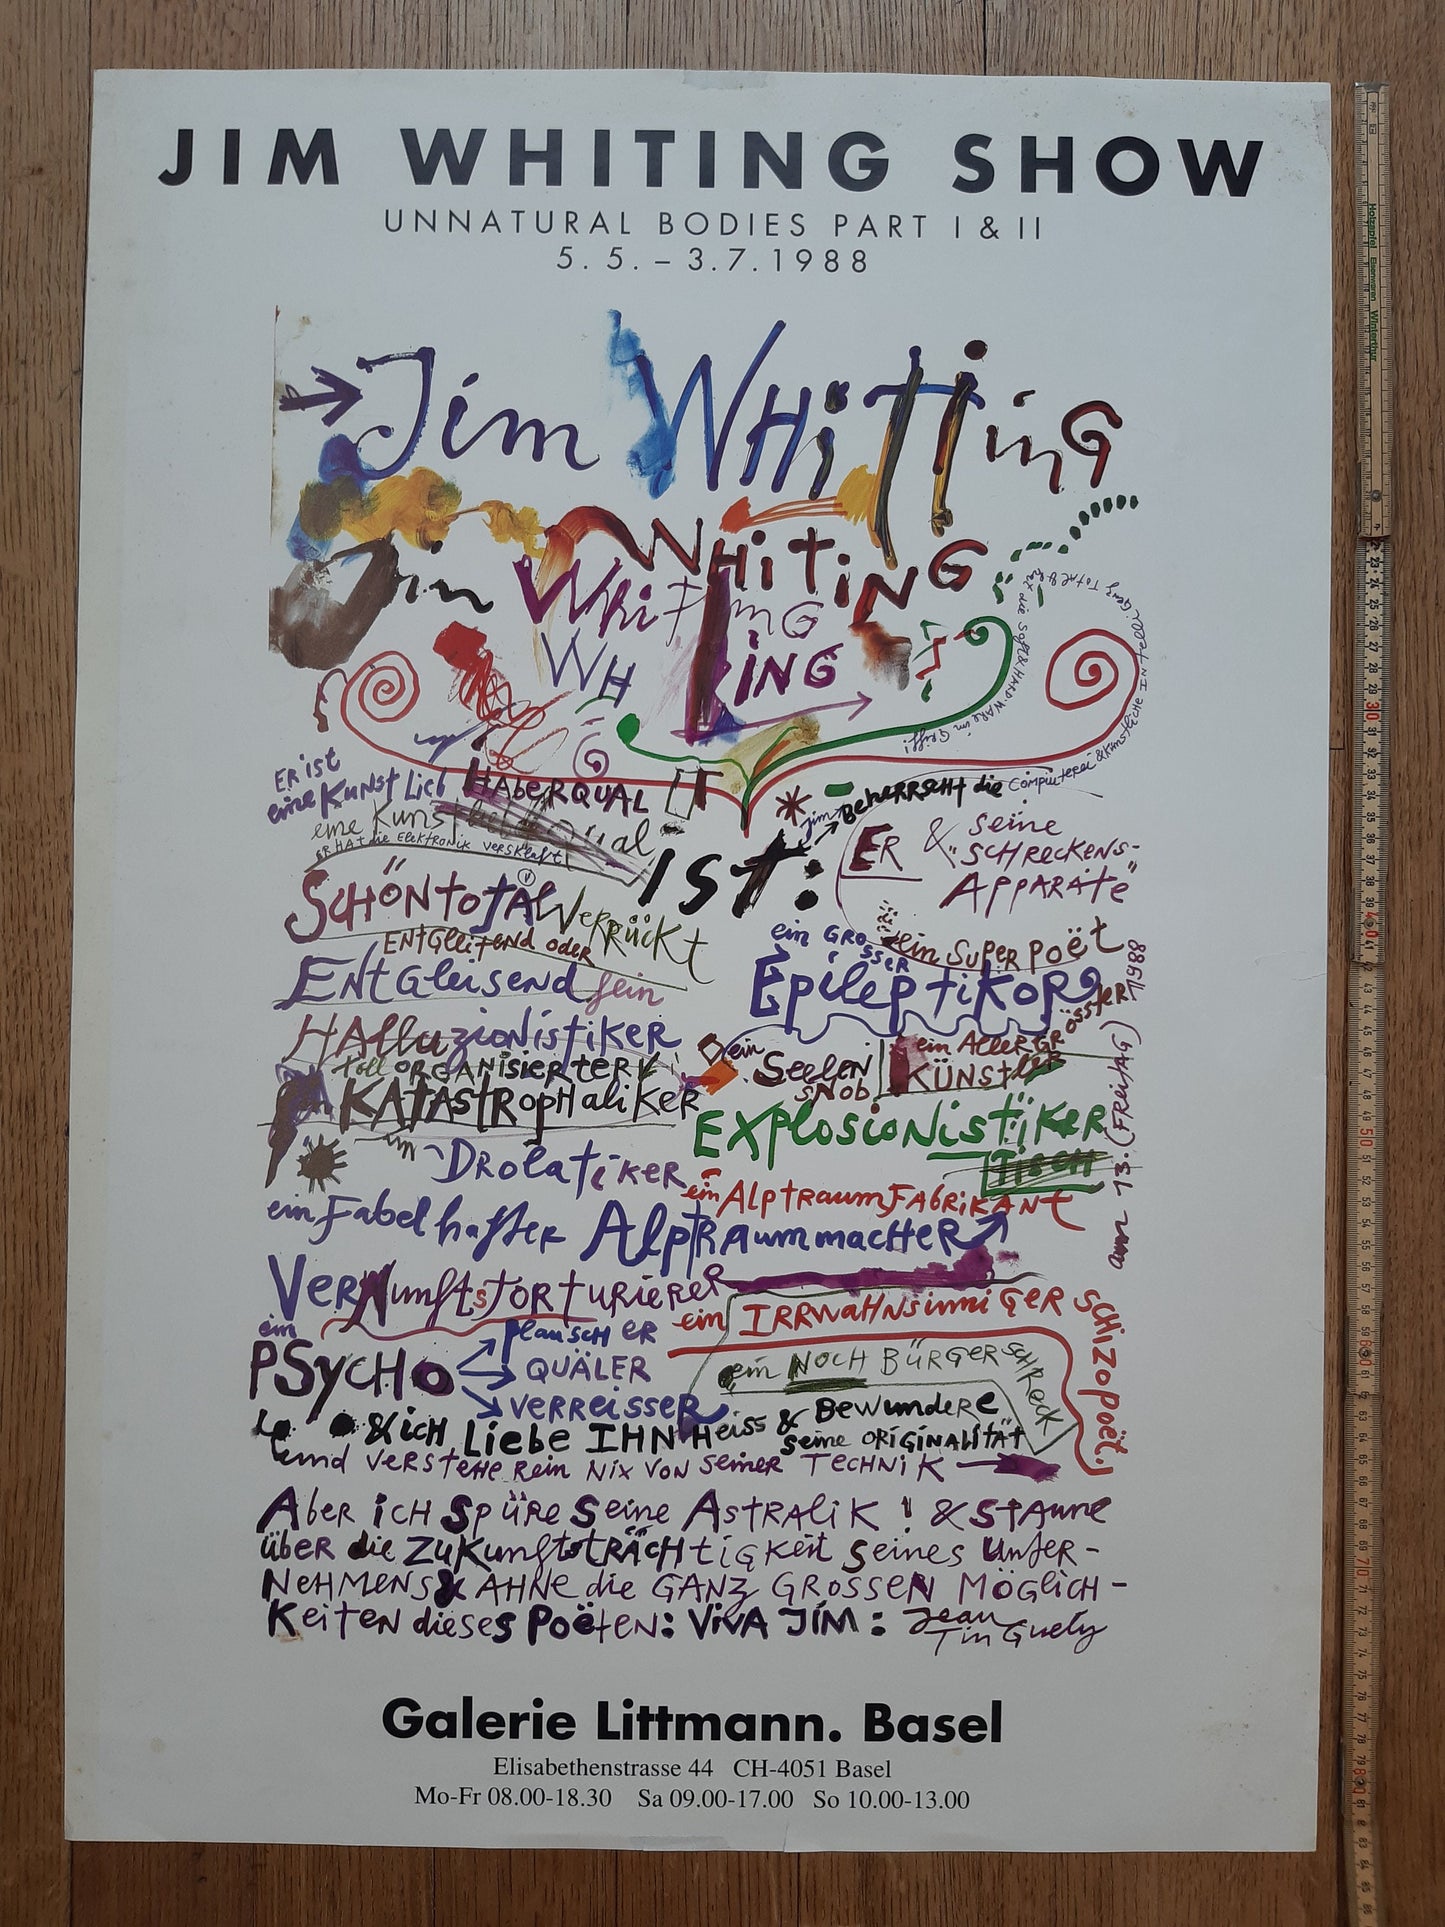 JIM WHITING SHOW
UNNATURAL BODIES PART I & II
5.5. – 3.7.1988
Jim WHiTTinG
Jim WHiTiNG
WhiTinG
WH iNG
ER ist
eine KUNST LieB HABERQUAL
eine Kunst
ER HAT die ELEKTRONIK VERSKlaft
IST:
Jim BEHERRSCHT die COMPiUTEREi & KünstlicHE INTElli GENZ TOTAL &
hat die SOFT & HARD WARE im Griff!
ER & seine
"SCHRECKENS-
APPARATE"
SCHÖN TOTAL VERRÜCKT
ENTGLEITEND ODER
ENTGleisend sein
ein GROSSER
ein SUPER POËT
EpilEpTiKOR
HAlluzioNisTiKER
toll ORGANisiERTER
KATASTROpHaliKER
ein SEELEN SNOB
ein ALLERGRÖSSTER
KÜNSTLER
EXPlosioNisTiKER
TISCH
DROlaTiKER
ein AlpTRAUMFABRiKANT
ein Fabelhafter AlpTRAummacHER
am 13. (FREiTAG) 1988
VERNunftsTORTURiERER
ein IRRWAHNSinniGER SCHIZOPOËT.
ein PSYCHO
plauscH ER
QUÄLER
VERREiSSER
ein NOCH BÜRGERSCHRECK
& iCH LiEBE IHN HEiss & BEWUNDERE
SEiNE ORIGINALITÄT
und VERSTEHE REiN NiX VON SEiNER TECHNiK
ABER iCH SpÜRE SEiNE ASTRALiK ! & STAUNE
ÜBER die ZUKunftsTRÄCHTiGKEiT SEiNES UNTER-
NEHMENS & AHNE die GANZ GROSSEN MÖGLiCH-
KEiTEN diESES POËTEN: ViVA JiM: Jean
TinGuely
Galerie Littmann. Basel
Elisabethenstrasse 44 CH-4051 Basel
Mo-Fr 08.00-18.30 Sa 09.00-17.00 So 10.00-13.00
Holzapfel Eisenwaren Winterthur